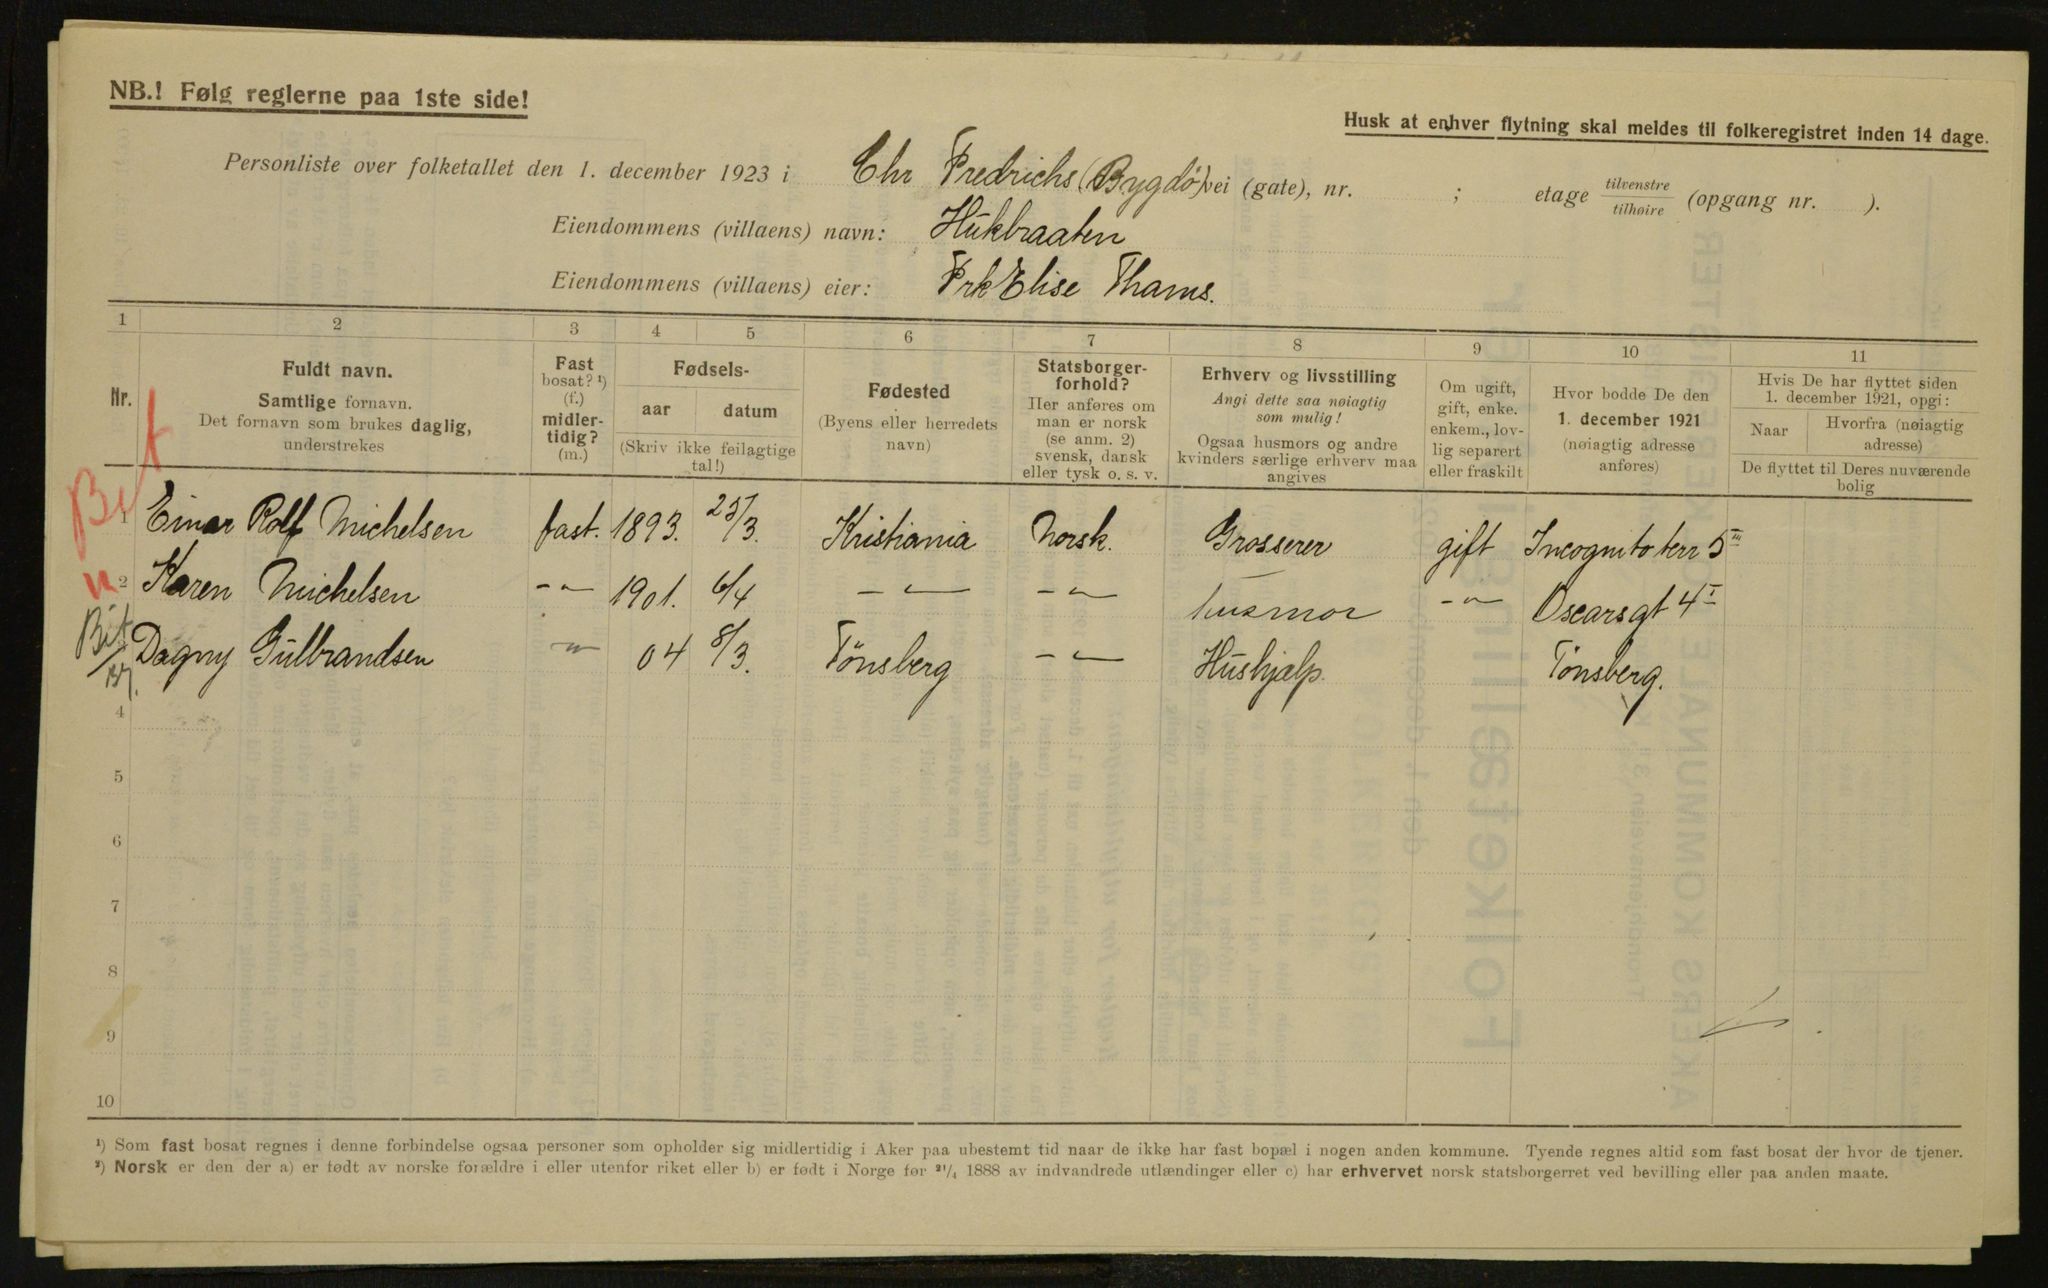 NB.! Følg reglerne paa 1ste side!
Husk at enhver flytning skal meldes til folkeregistret inden 14 dage.
Personliste over folketallet den 1. december 1923 i Chr Fredrichs (Bygdö) vei (gate), nr. ; etage tilvenstre/tilhøire (opgang nr. ).
Eiendommens (villaens) navn: Hukbraaten
Eiendommens (villaens) eier: Frk Elise Thams.
1 2 3 4 5 6 7 8 9 10 11
Nr.
Fuldt navn.
Samtlige fornavn.
Det fornavn som brukes daglig,
understrekes
Fast
bosat? ¹)
(f.)
midler-
tidig?
(m.)
Fødsels-
aar datum
(Skriv ikke feilagtige
tal!)
Fødested
(Byens eller herredets
navn)
Statsborger-
forhold?
Her anføres om
man er norsk
(se anm. 2)
svensk, dansk
eller tysk o. s. v.
Erhverv og livsstilling
Angi dette saa nøiagtig
som mulig!
Ogsaa husmors og andre
kvinders særlige erhverv maa
angives
Om ugift,
gift, enke.
enkem., lov-
lig separert
eller fraskilt
Hvor bodde De den
1. december 1921
(nøiagtig adresse
anføres)
Hvis De har flyttet siden
1. december 1921, opgi:
Naar
Hvorfra (nøiagtig
adresse)
De flyttet til Deres nuværende
bolig
Bit
1 Einar Rolf Michelsen fast. 1893. 25/3. Kristiania Norsk. Grosserer gift Incognito terr 5 III
" 2 Karen Michelsen -"- 1901. 6/4 -"- -"- husmor -"- Oscarsgt 4 I
Bit
Dagny Gulbrandsen -"- 04 8/3. Tönsberg -"- Hushjælp. Tönsberg.
4
5
6
7
8
9
10
¹) Som fast bosat regnes i denne forbindelse ogsaa personer som opholder sig midlertidig i Aker paa ubestemt tid naar de ikke har fast bopæl i nogen anden kommune. Tyende regnes altid som fast bosat der hvor de tjener.
²) Norsk er den der a) er født av norske forældre i eller utenfor riket eller b) er født i Norge før 21/4 1888 av indvandrede utlændinger eller c) har erhvervet norsk statsborgerret ved bevilling eller paa anden maate.